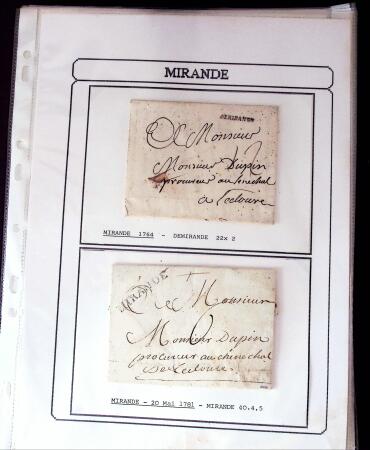 MIRANDE
DEMIRANDE
A Monsieur
Monsieur Dupin
procureur au senechal
a Lectoure
MIRANDE 1764 - DEMIRANDE 22x 2
MIRANDE
A Monsieur
Monsieur Dupin
procureur au chinechal
Lectoure
MIRANDE - 20 Mai 1781 - MIRANDE 40.4,5